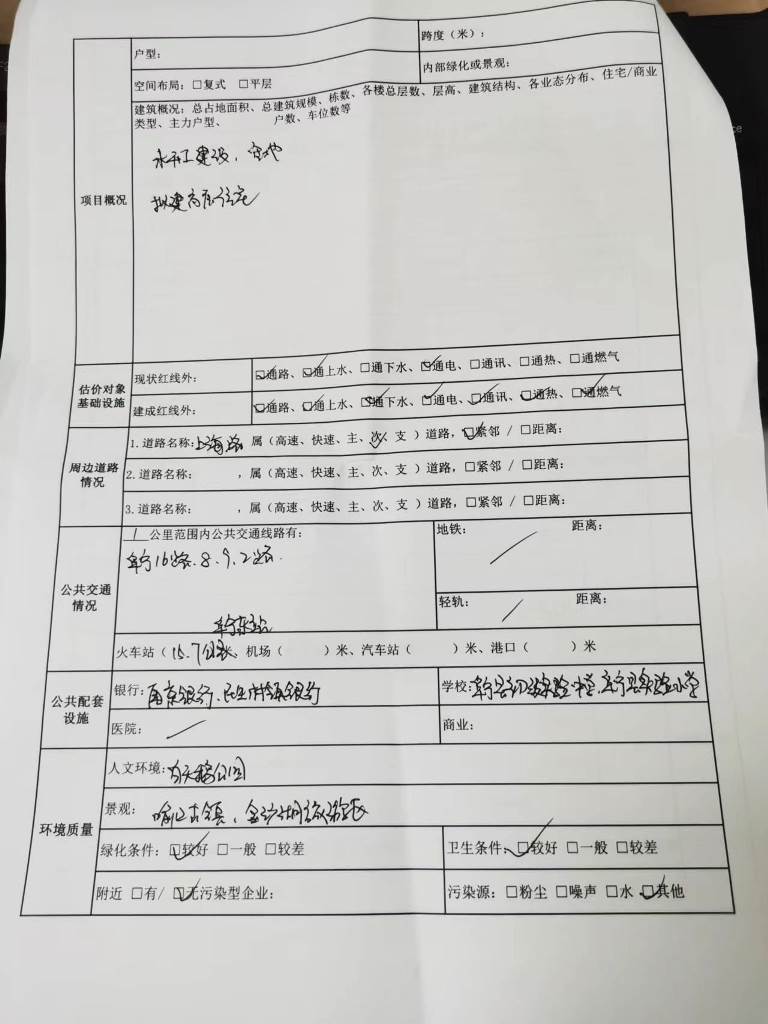 户型：
跨度（米）：
空间布局：□复式 □平层
内部绿化或景观：
项目概况
建筑概况：总占地面积、总建筑规模、栋数、各楼总层数、层高、建筑结构、各业态分布、住宅/商业
类型、主力户型、 户数、车位数等
未开工建设，空地
拟建高层住宅
估价对象
基础设施
现状红线外：
☑通路、☑通上水、□通下水、☑通电、□通讯、□通热、□通燃气
建成红线外：
☑通路、☑通上水、☑通下水、☑通电、☑通讯、☑通热、☑通燃气
周边道路
情况
1.道路名称：上海路 属（高速、快速、主、次、支）道路，☑紧邻 / □距离：
2.道路名称： ，属（高速、快速、主、次、支）道路，□紧邻 / □距离：
3.道路名称： ，属（高速、快速、主、次、支）道路，□紧邻 / □距离：
公共交通
情况
1 公里范围内公共交通线路有：
阜宁16路、8、9、2路.
地铁： 距离：
轻轨： 距离：
阜宁东站
火车站（15.7公里米、机场（ ）米、汽车站（ ）米、港口（ ）米
公共配套
设施
银行：南京银行、民生村镇银行
学校：阜宁县实验中学，阜宁县实验小学
医院：
商业：
环境质量
人文环境：公园
景观：
绿化条件：☑较好 □一般 □较差
卫生条件：☑较好 □一般 □较差
附近 □有/ ☑无污染型企业：
污染源：□粉尘 □噪声 □水 ☑其他